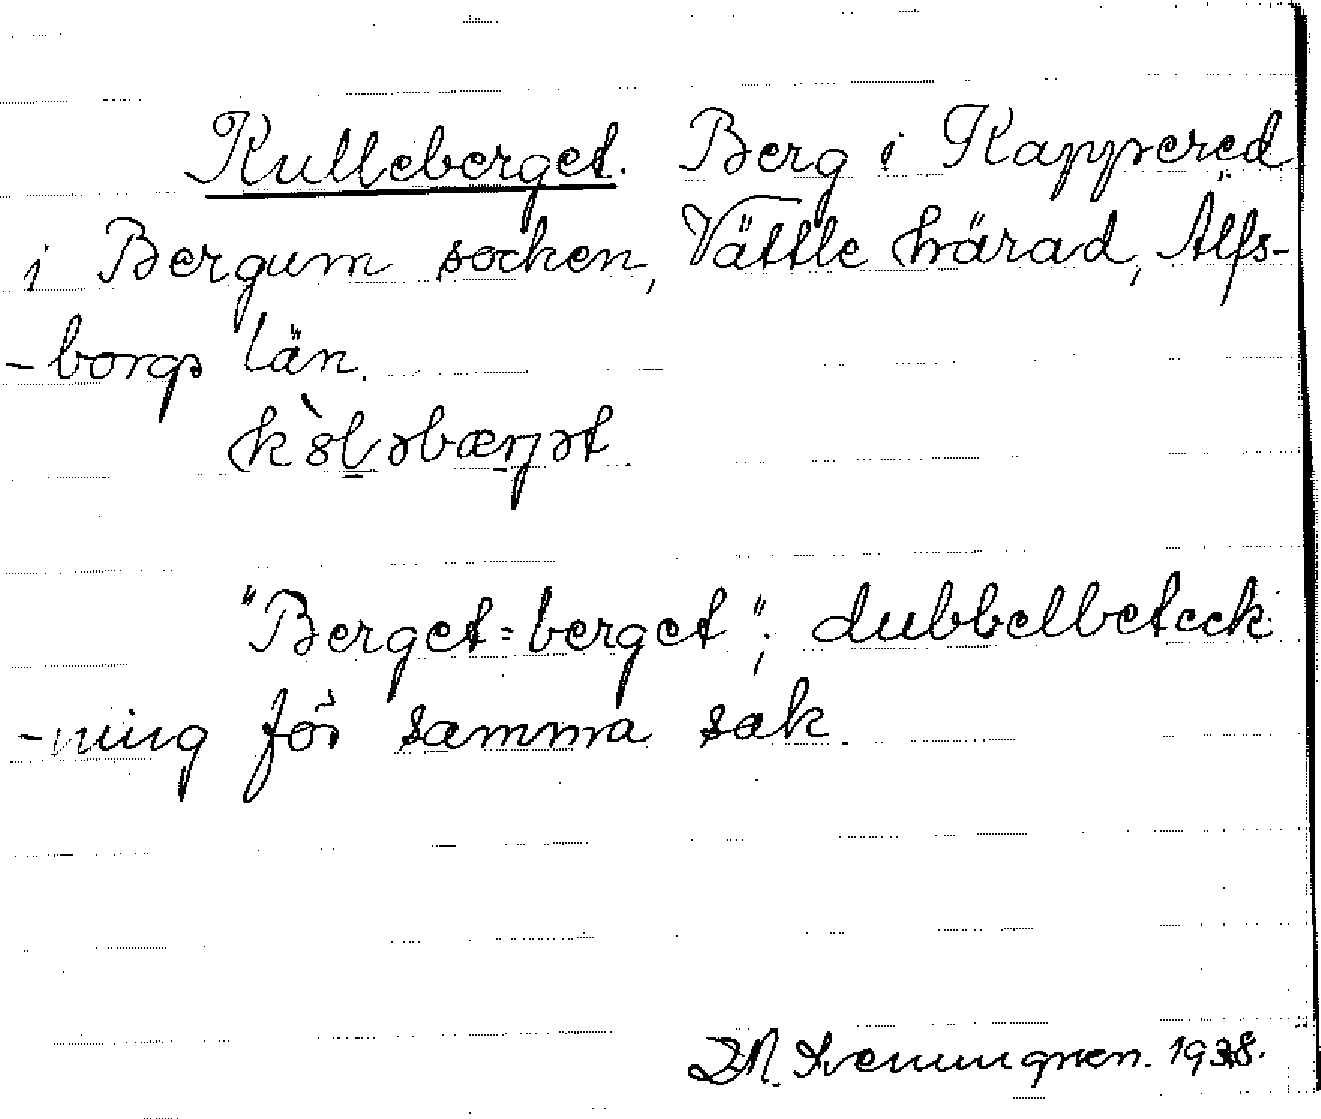 Kulleberget. Berg i Kappered
i Bergum socken, Vättle härad, Älfs-
-borgs län.
"Berget=berget"; dubbelbeteck
-ning för samma sak.
1938.